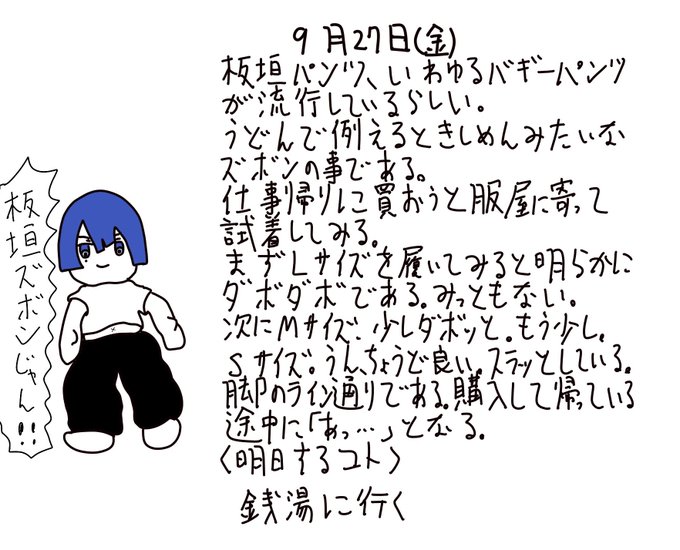 9月27日(金)
板垣パンツ、いわゆるバギーパンツ
が流行しているらしい。
うどんで例えるときしめんみたいな
ズボンの事である。
仕事帰りに買おうと服屋に寄って
試着してみる。
まずLサイズを履いてみると明らかに
ダボダボである。みっともない。
次にMサイズ、少しダボッと。もう少し。
Sサイズ。うん、ちょうど良い。スラッとしている。
脚のライン通りである。購入して帰っている
途中に「あっ…」となる。
〈明日するコト〉
銭湯に行く
板垣ズボンじゃん!!